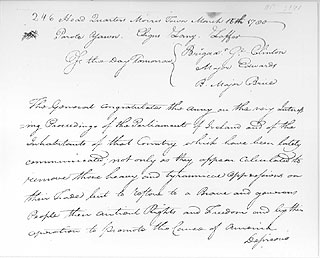 246 Head Quarters Morris Town March 16th 1780
Parole
Of the Day Tomorrow { Brigad. Gl. Clinton
Major Edwards
B. Major Brice
The General congratulates the Army on the very Interes
ing Proceedings of the Parliament of Ireland and of the
Inhabitants of that Country which have been lately
communicated, not only as they appear calculated to
remove those heavy and tyrannical oppressions on
their Trade but to restore to a Brave and generous
People their antient Rights and Freedom and by their
operation to Promote the Cause of America
Desireous